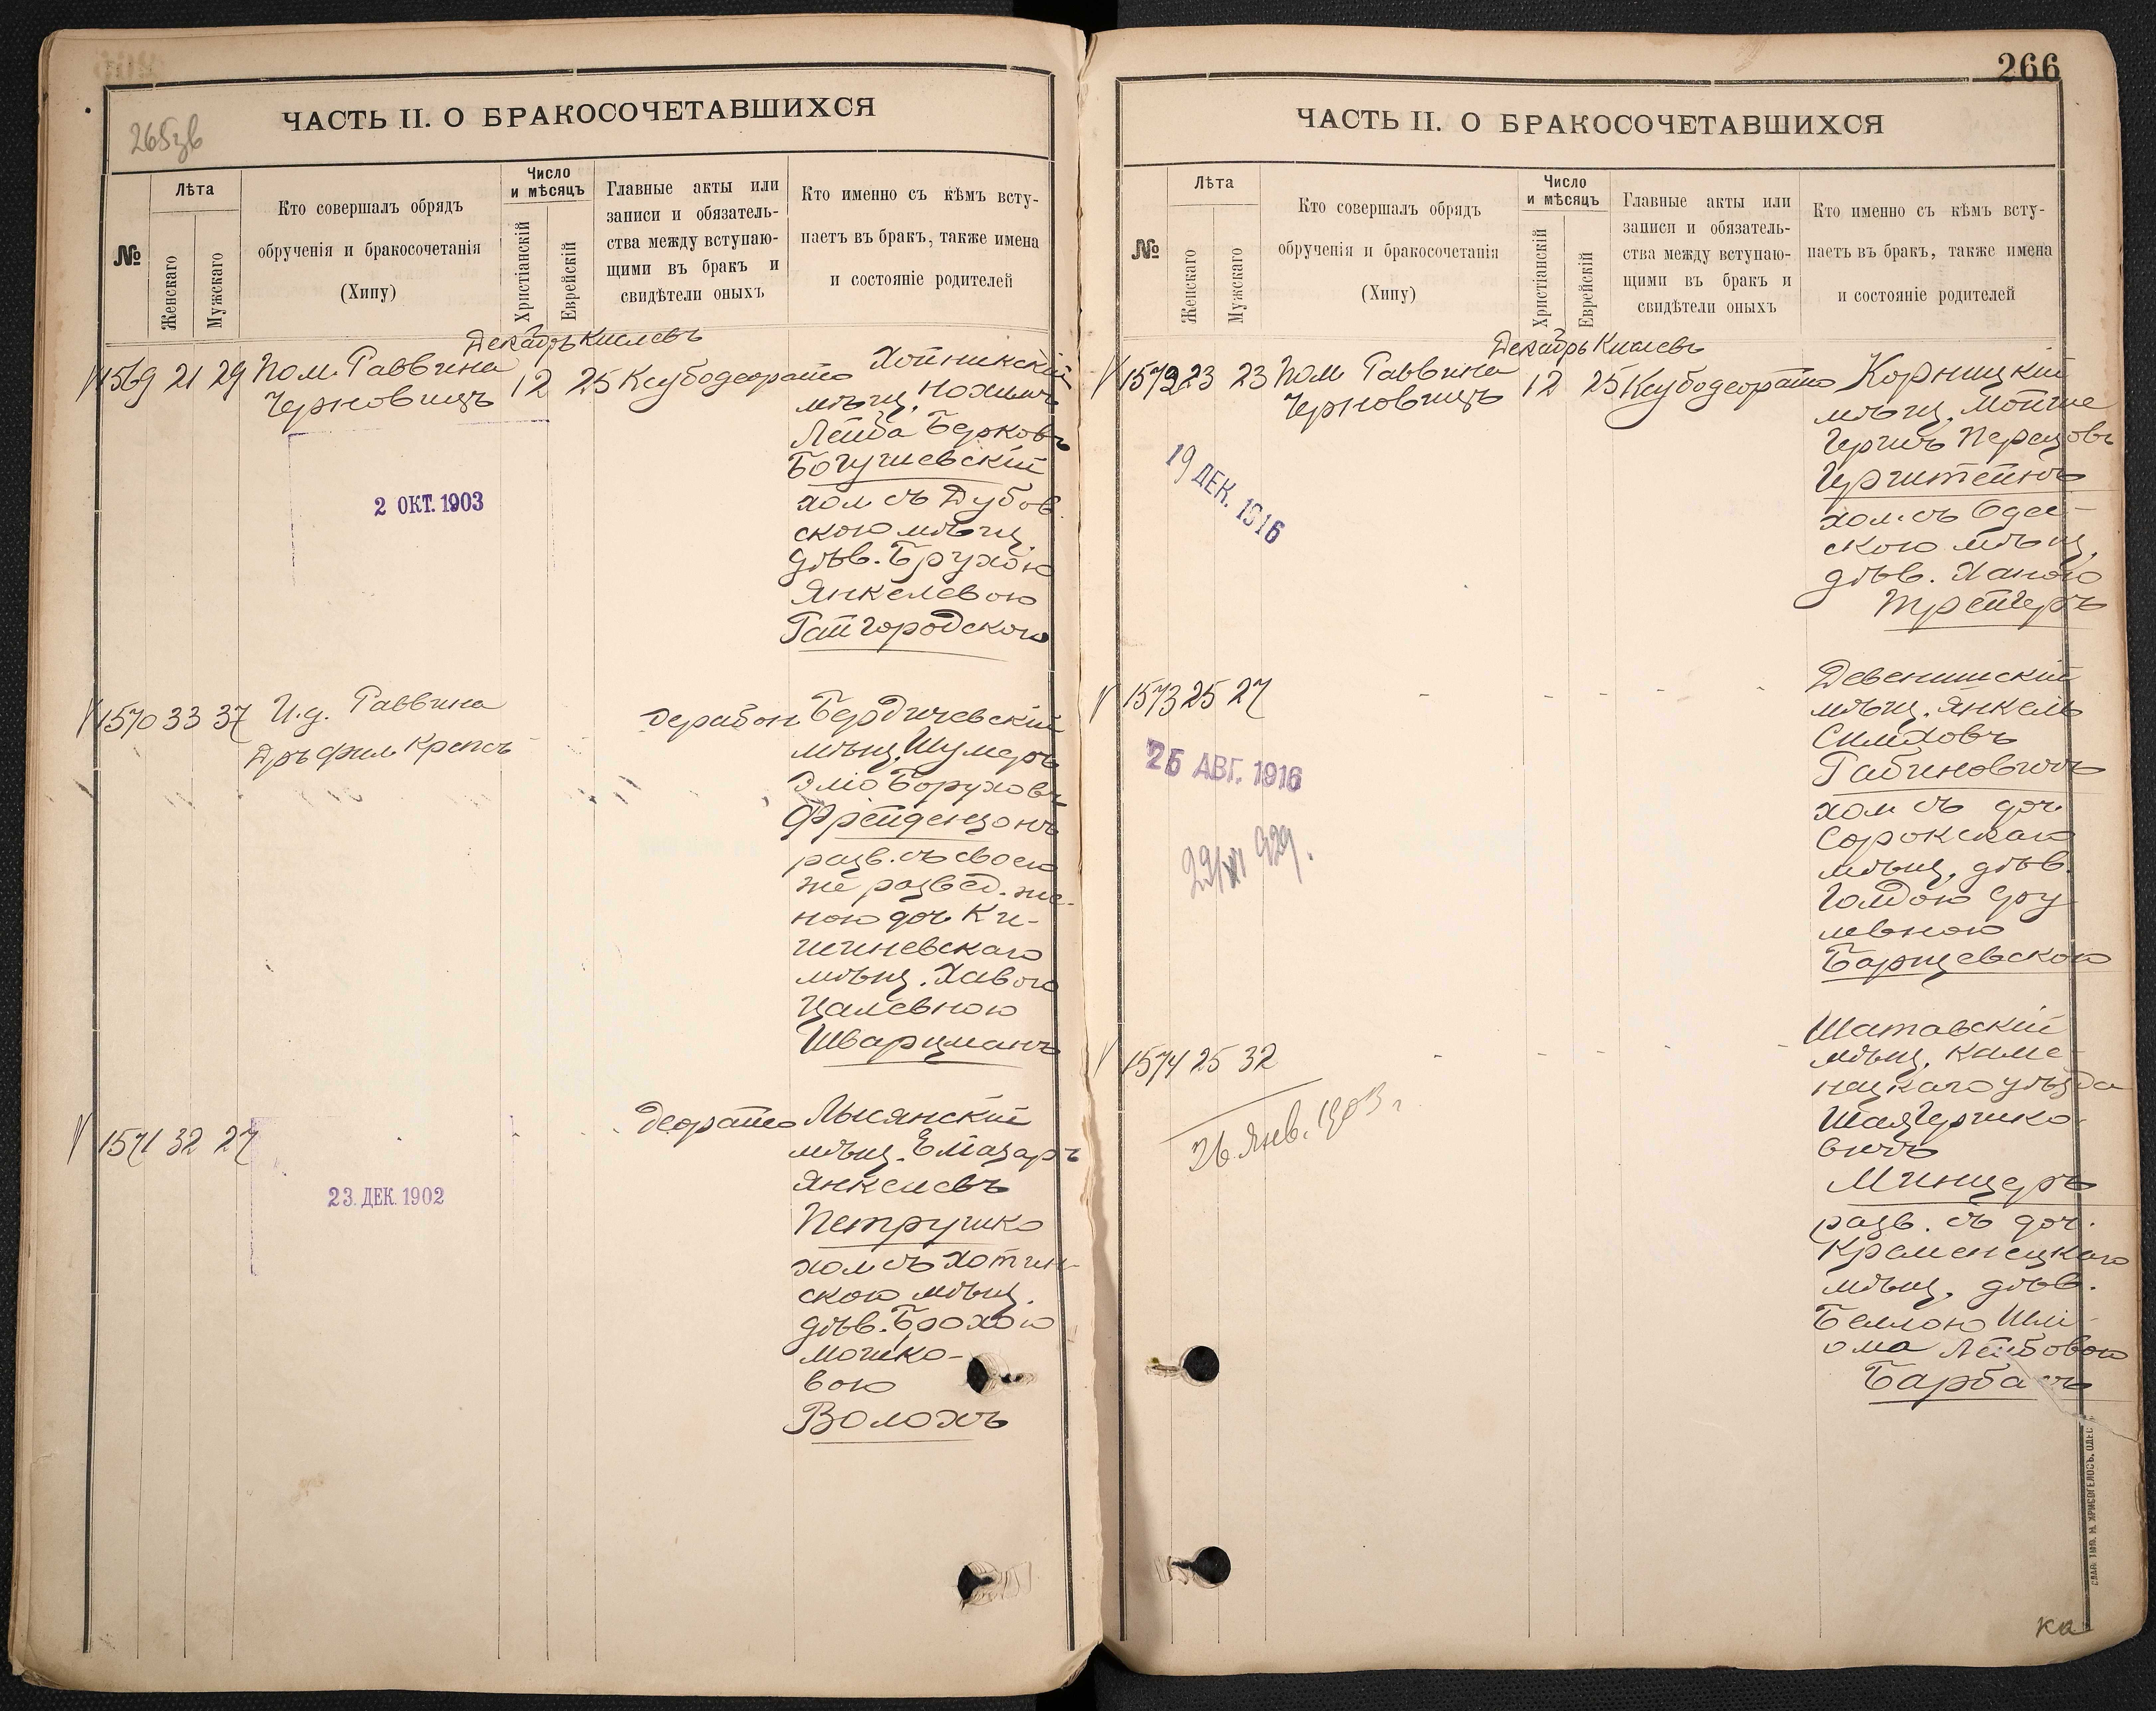 265зв
ЧАСТЬ II. О БРАКОСОЧЕТАВШИХСЯ
№
Лѣта
Женскаго
Мужскаго
Кто совершалъ обрядъ
обрученія и бракосочетанія
(Хипу)
Число
и мѣсяцъ
Христіанскій
Еврейскій
Главные акты или
записи и обязатель-
ства между вступаю-
щими въ бракъ и
свидѣтели оныхъ
Кто именно съ кѣмъ всту-
паетъ въ бракъ, также имена
и состояніе родителей
Декабрь Кислевъ
1569 21 29 Пом. Раввина
Черновицъ
12 25 Ксубодеорайсо
Хойникскій
мѣщ. Нохимъ
Лейба Берковъ
Богушевскій
хол съ Дубов
скою мѣщ.
дѣв. Брухою
Янкелевою
Гайгородскою
2 ОКТ. 1903
1570 33 37 И.д. Раввина
Дръ фил Крепсъ
дерабон
Бердичевскій
мѣщ. Шумеръ
Эліо Боруховъ
Фрейдензонъ
разв. съ своею
же развед. же-
ною доч. Ки-
шиневскаго
мѣщ. Хавою
Цалевною
Шварцманъ
1571 32 27
деорайсо
Лысянскій
мѣщ. Еліазаръ
Янкелевъ
Петрушко
хол съ Хотин-
скою мѣщ.
дѣв. Брохою
Мошко-
вою
Волохъ
23. ДЕК. 1902
266
ЧАСТЬ II. О БРАКОСОЧЕТАВШИХСЯ
№
Лѣта
Женскаго
Мужскаго
Кто совершалъ обрядъ
обрученія и бракосочетанія
(Хипу)
Число
и мѣсяцъ
Христіанскій
Еврейскій
Главные акты или
записи и обязатель-
ства между вступаю-
щими въ бракъ и
свидѣтели оныхъ
Кто именно съ кѣмъ всту-
паетъ въ бракъ, также имена
и состояніе родителей
Декабрь Кислевъ
1572 23 23 Пом Раввина
Черновицъ
12 25 Ксубодеорайсо
Корницкій
мѣщ. Мойше
Гершъ Перецовъ
Герштейнъ
хол. съ Одес-
скою мѣщ.
дѣв. Ханою
Трейгеръ
19 ДЕК. 1916
1573 25 27
Девенишскій
мѣщ. Янкель
Симховъ
Рабиновичъ
хол съ доч.
Сорокскаго
мѣщ. дѣв.
Голдою Сру
левною
Барщевскою
25 АВГ. 1916
29/XI 929.
1574 25 32
Шатавскій
мѣщ. Каме-
нецкаго уѣзда
Шая Гершко-
вичъ
Минцеръ
разв. съ доч.
Кременецкаго
мѣщ. дѣв.
Бейлою Шли-
ома Лейбовою
Барбашъ
26 Янв. 1903 г
СЛАВ. ТИП. М. ХРИСОГЕЛОСЪ, ОДЕС